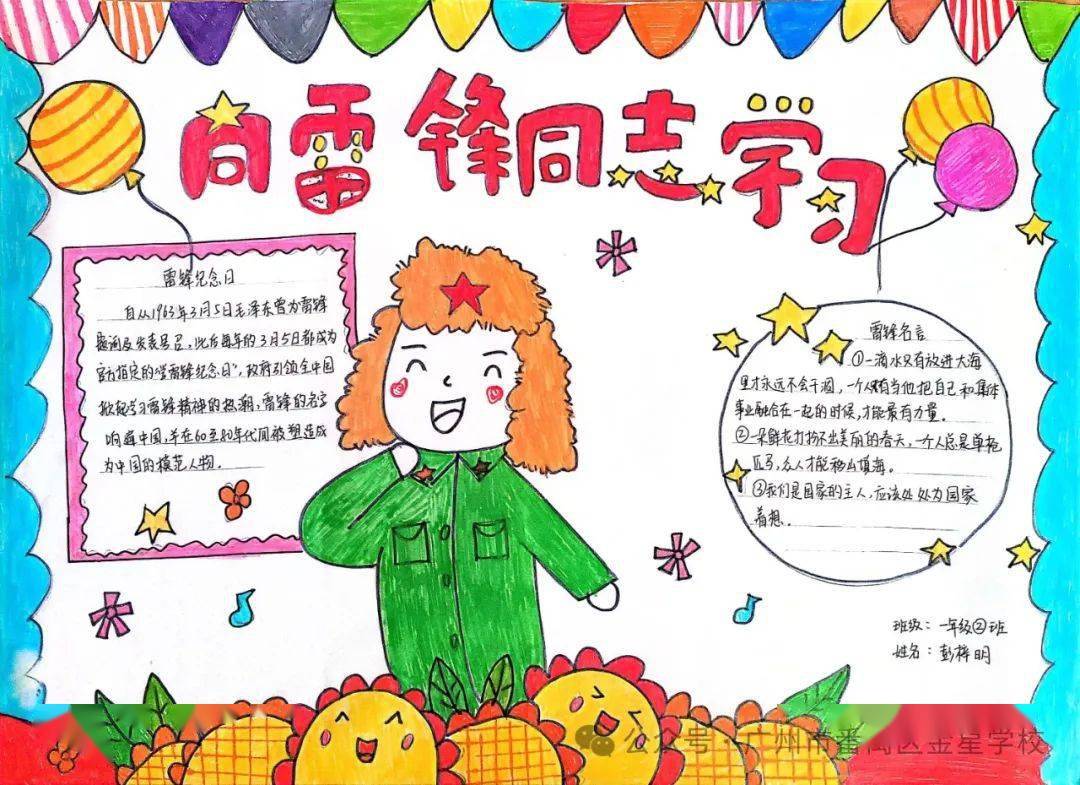 向雷锋同志学习
雷锋纪念日
自从1963年3月5日毛泽东曾为雷锋
题词及发表号召,此后每年的3月5日都成为
官方指定的"学雷锋纪念日",政府引领全中国
掀起学习雷锋精神的热潮,雷锋的名字
响彻中国,并在60至80年代间被塑造成
为中国的模范人物。
雷锋名言
①一滴水只有放进大海
里才永远不会干涸,一个人只有当他把自己和集体
事业融合在一起的时候,才能最有力量。
②一朵鲜花打扮不出美丽的春天,一个人总是单枪
匹马,众人才能移山填海。
③我们是国家的主人,应该处处为国家
着想。
班级:一年级②班
姓名:彭梓明
公众号·广州市番禺区金星学校